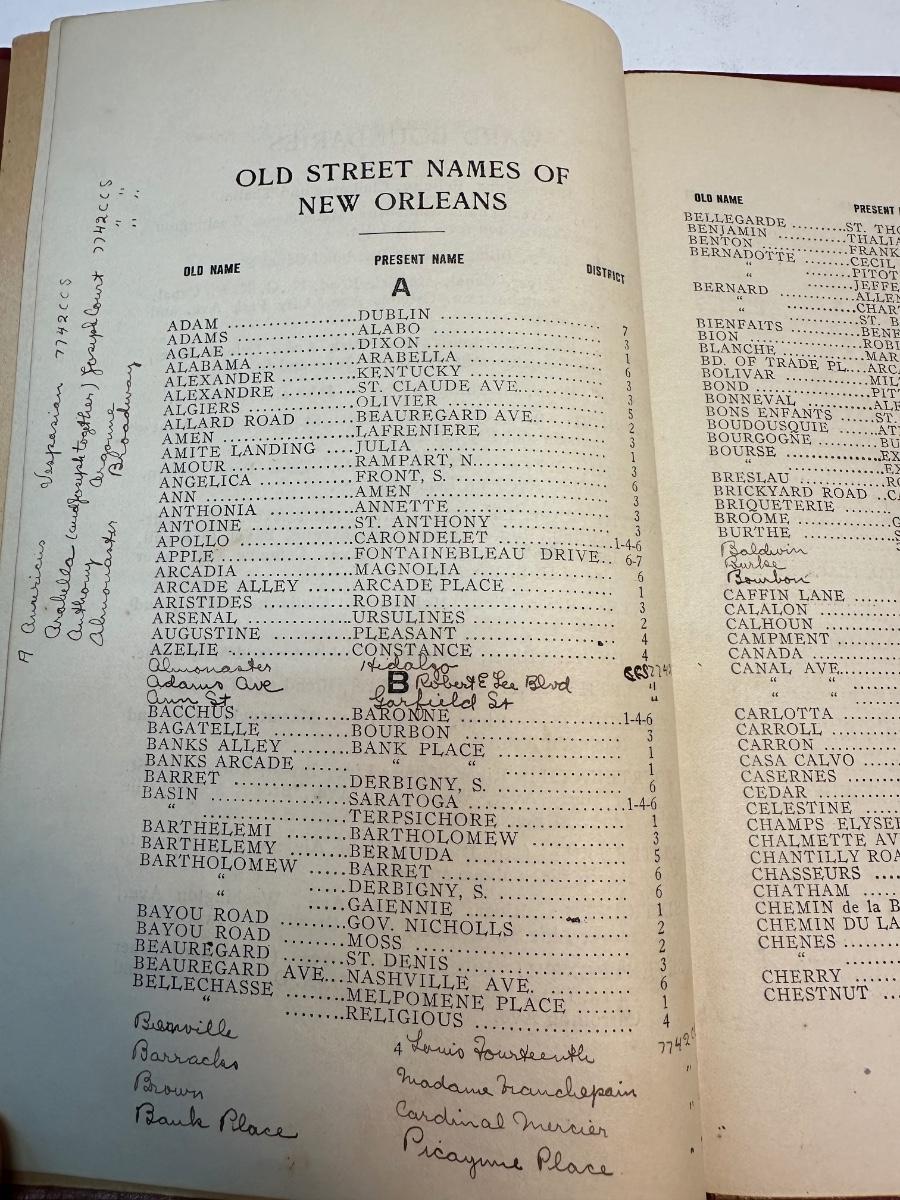 OLD STREET NAMES OF
NEW ORLEANS
OLD NAME PRESENT NAME DISTRICT
A
ADAM ........ DUBLIN ........ 7
ADAMS ........ ALABO ........ 3
AGLAE ........ DIXON ........ 1
ALABAMA ........ ARABELLA ........ 6
ALEXANDER ........ KENTUCKY ........ 3
ALEXANDRE ........ ST. CLAUDE AVE. ........ 3
ALGIERS ........ OLIVIER ........ 5
ALLARD ROAD ........ BEAUREGARD AVE. ........ 2
AMEN ........ LAFRENIERE ........ 3
AMITE LANDING ........ JULIA ........ 1
AMOUR ........ RAMPART, N. ........ 3
ANGELICA ........ FRONT, S. ........ 6
ANN ........ AMEN ........ 3
ANTHONIA ........ ANNETTE ........ 3
ANTOINE ........ ST. ANTHONY ........ 3
APOLLO ........ CARONDELET ........ 1-4-6
APPLE ........ FONTAINEBLEAU DRIVE.. 6-7
ARCADIA ........ MAGNOLIA ........ 6
ARCADE ALLEY ........ ARCADE PLACE ........ 1
ARISTIDES ........ ROBIN ........ 3
ARSENAL ........ URSULINES ........ 2
AUGUSTINE ........ PLEASANT ........ 4
AZELIE ........ CONSTANCE ........ 4
Almonaster Hidalgo CCS 7742
Adams Ave Robert E Lee Blvd "
Ann St Garfield St "
B
BACCHUS ........ BARONNE ........ 1-4-6
BAGATELLE ........ BOURBON ........ 3
BANKS ALLEY ........ BANK PLACE ........ 1
BANKS ARCADE ........ " " ........ 1
BARRET ........ DERBIGNY, S. ........ 6
BASIN ........ SARATOGA ........ 1-4-6
" ........ TERPSICHORE ........ 1
BARTHELEMI ........ BARTHOLOMEW ........ 3
BARTHELEMY ........ BERMUDA ........ 5
BARTHOLOMEW ........ BARRET ........ 6
" ........ DERBIGNY, S. ........ 6
" ........ GAIENNIE ........ 1
BAYOU ROAD ........ GOV. NICHOLLS ........ 2
BAYOU ROAD ........ MOSS ........ 2
BEAUREGARD ........ ST. DENIS ........ 3
BEAUREGARD AVE... NASHVILLE AVE. ........ 6
BELLECHASSE ........ MELPOMENE PLACE ........ 1
" ........ RELIGIOUS ........ 4
Bienville 4 Louis Fourteenth 7742
Barracks Madame Tranchepain "
Brown Cardinal Mercier "
Bank Place Picayune Place "
A Americus Vespasian 7742CCS
Arabella (and Joseph together) Joseph Court 7742CCS
Anthony Argonne " "
Almonaster Broadway " "
OLD NAME PRESENT
BELLEGARDE ........ ST. THO
BENJAMIN ........ THALIA
BENTON ........ FRANK
BERNADOTTE ........ CECIL
" ........ PITOT
" ........ JEFFE
BERNARD ........ ALLEN
" ........ CHAR
BIENFAITS ........ ST. B
BION ........ BENE
BLANCHE ........ ROBI
BD. OF TRADE PL. ... MAR
BOLIVAR ........ ARCA
BOND ........ MIL
BONNEVAL ........ PIT
BONS ENFANTS ........ ALE
BOUDOUSQUIE ........ ST.
BOURGOGNE ........ AT
BOURSE ........ BU
" ........ EX
BRESLAU ........ EX
BRICKYARD ROAD ..CA
BRIQUETERIE
BROOME
BURTHE
Baldwin
Burke
Bourbon
CAFFIN LANE
CALALON
CALHOUN
CAMPMENT
CANADA
CANAL AVE.
" "
" "
CARLOTTA
CARROLL
CARRON
CASA CALVO
CASERNES
CEDAR
CELESTINE
CHAMPS ELYSEE
CHALMETTE AV
CHANTILLY ROA
CHASSEURS
CHATHAM
CHEMIN de la B
CHEMIN DU LA
CHENES
"
CHERRY
CHESTNUT